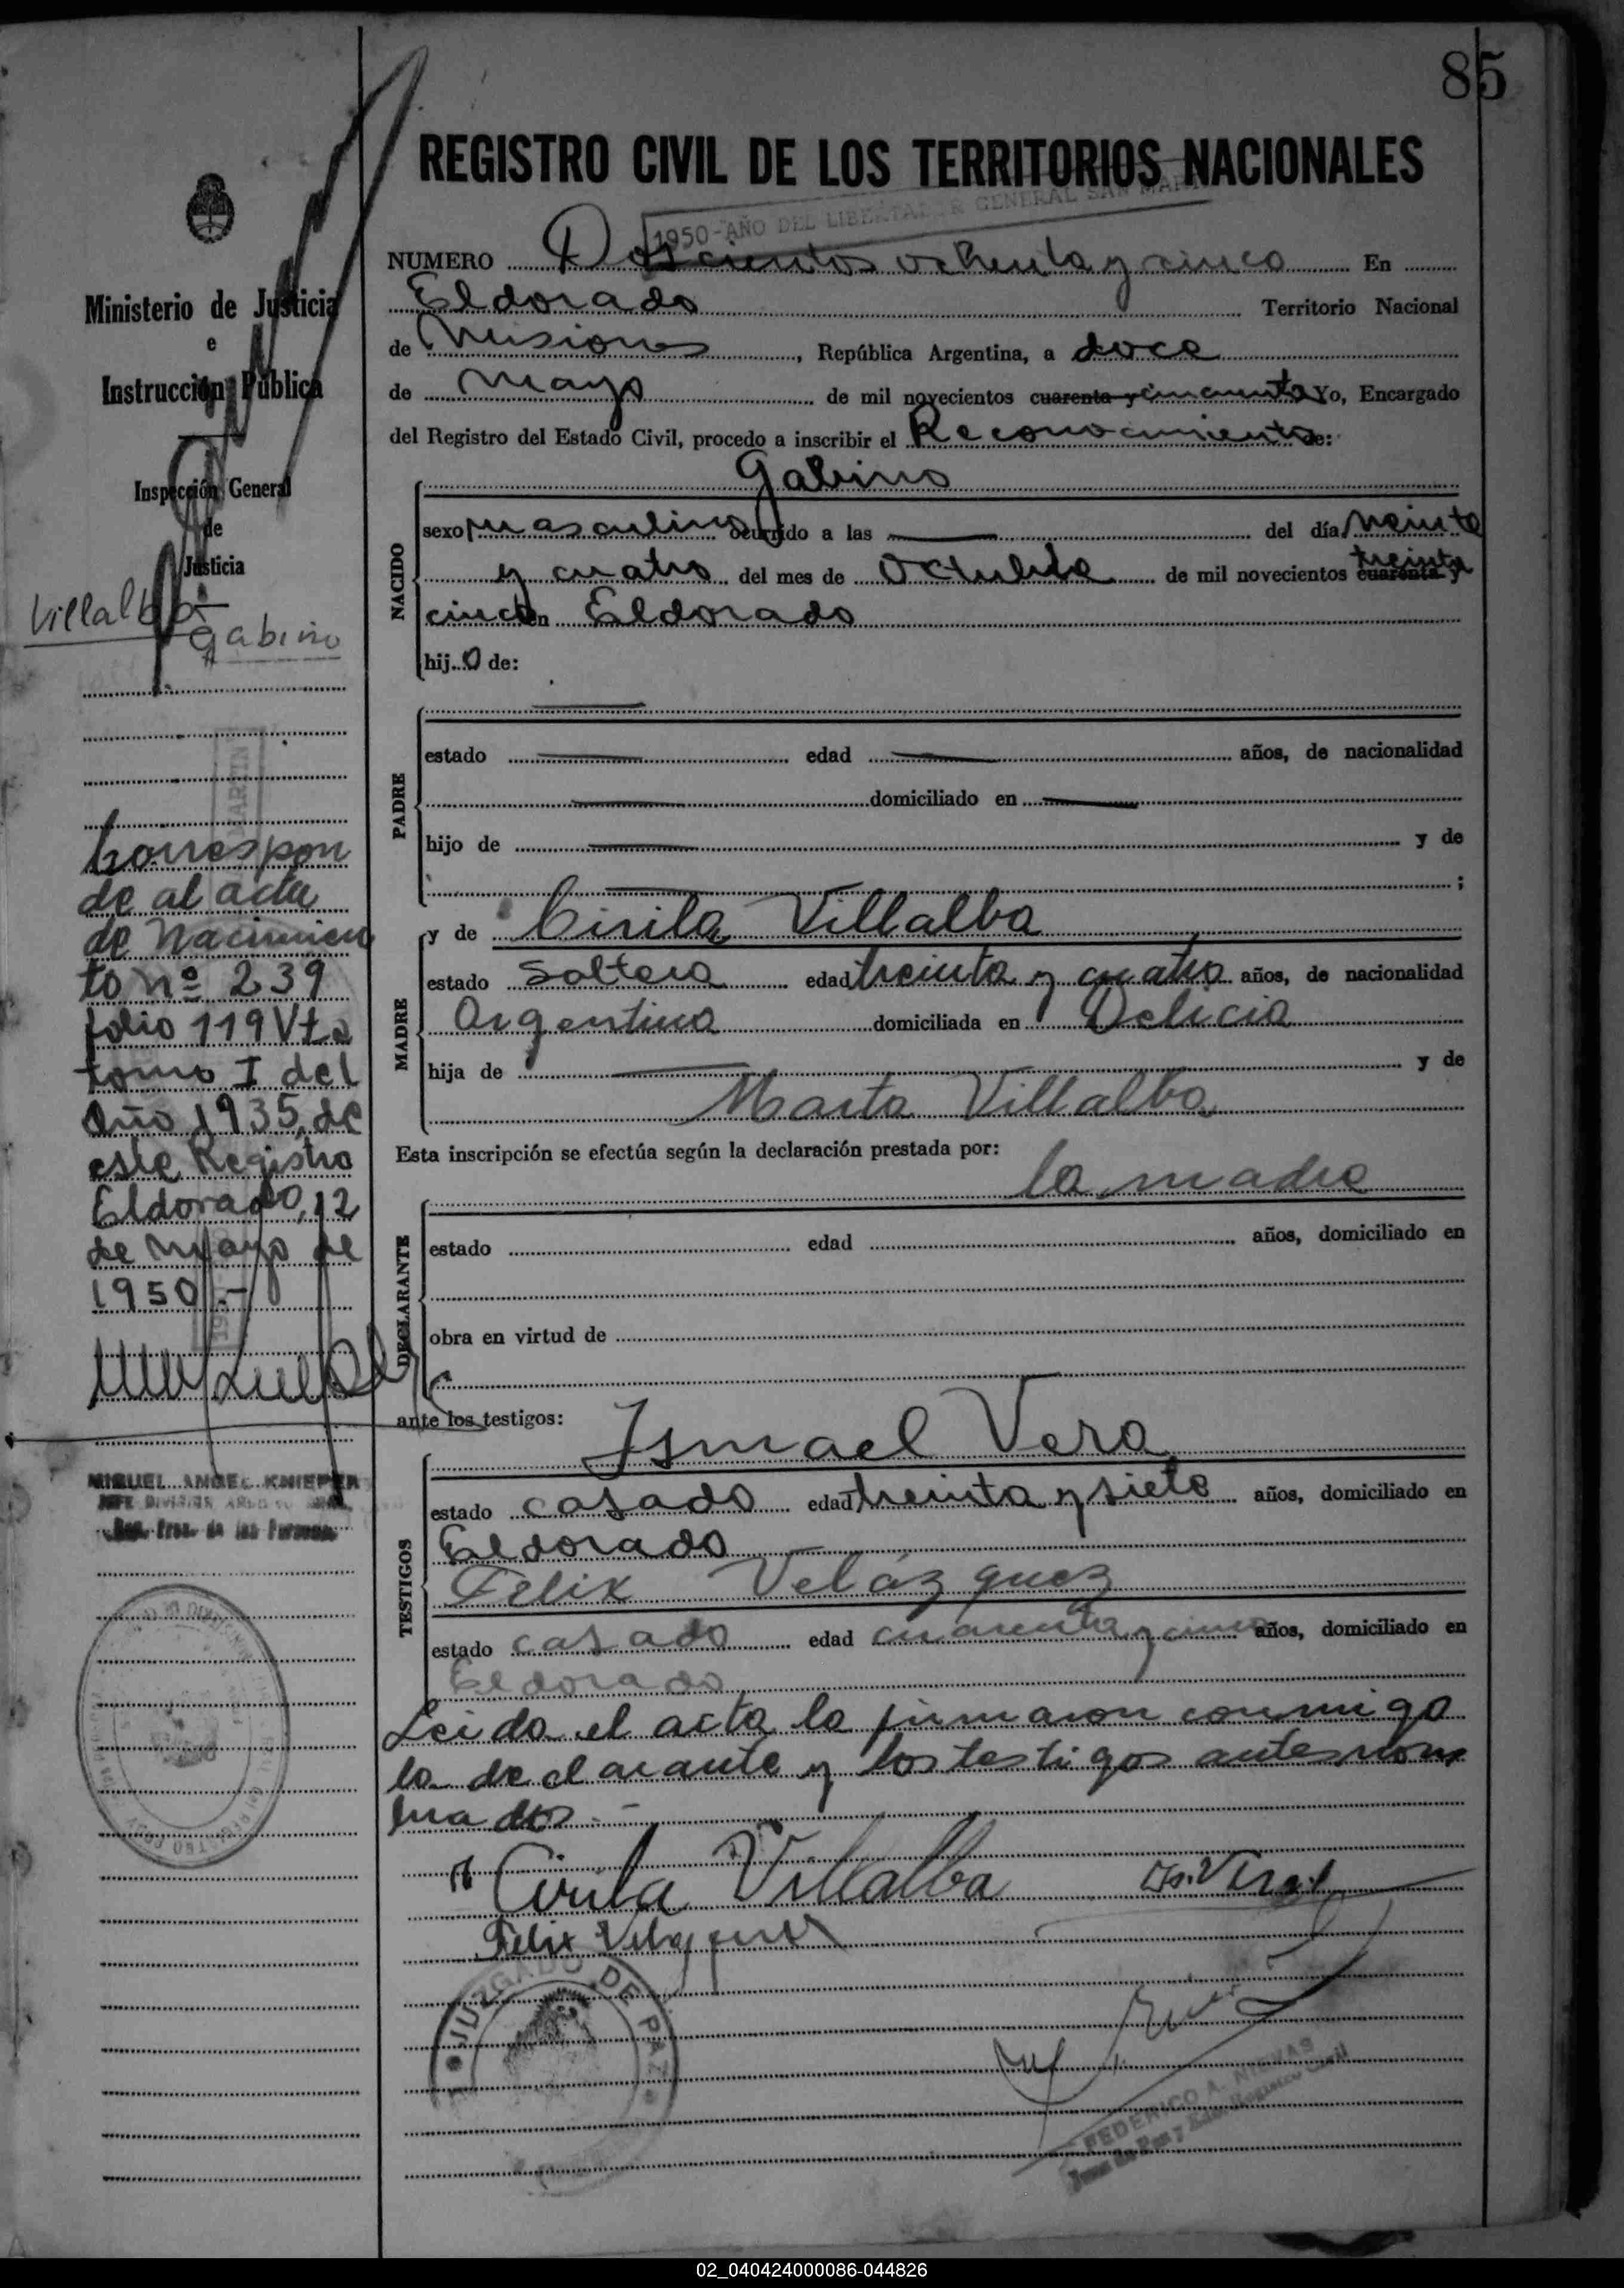 85
REGISTRO CIVIL DE LOS TERRITORIOS NACIONALES
1950 - AÑO DEL LIBERTADOR GENERAL SAN MARTIN
NUMERO Doscientos ochenta y cinco En
Eldorado Territorio Nacional
de Misiones, República Argentina, a doce
de mayo de mil novecientos cuarenta y cincuenta Yo, Encargado
del Registro del Estado Civil, procedo a inscribir el Reconocimiento de:
Gabino
NACIDO
sexo masculino ocurrido a las del día veinte
y cuatro del mes de Octubre de mil novecientos cuarenta y treinta
cinco en Eldorado
hijo de:
PADRE
estado edad años, de nacionalidad
domiciliado en
hijo de y de
;
y de Cirila Villalba
MADRE
estado Soltera edad treinta y cuatro años, de nacionalidad
Argentina domiciliada en Delicia
hija de y de
Marta Villalba
Esta inscripción se efectúa según la declaración prestada por:
la madre
DECLARANTE
estado edad años, domiciliado en
obra en virtud de
ante los testigos:
Ismael Vera
TESTIGOS
estado casado edad treinta y siete años, domiciliado en
Eldorado
Felix Velázquez
estado casado edad cuarenta y cinco años, domiciliado en
Eldorado
Leida el acta la firmaron conmigo
la declarante y los testigos antes nom
brados.-
Cirila Villalba
Is. Vera
Felix Velazquez
JUZGADO DE PAZ
FEDERICO A. NIEVAS
Ministerio de Justicia
e
Instrucción Pública
Inspección General
de
Justicia
Villalba
Gabino
Correspon
de al acta
de Nacimien
to nº 239
folio 119 Vta
tomo I del
Año 1935, de
este Registro
Eldorado, 12
de Mayo de
1950.-
MIGUEL ANGEL KNIEPER
02_040424000086-044826